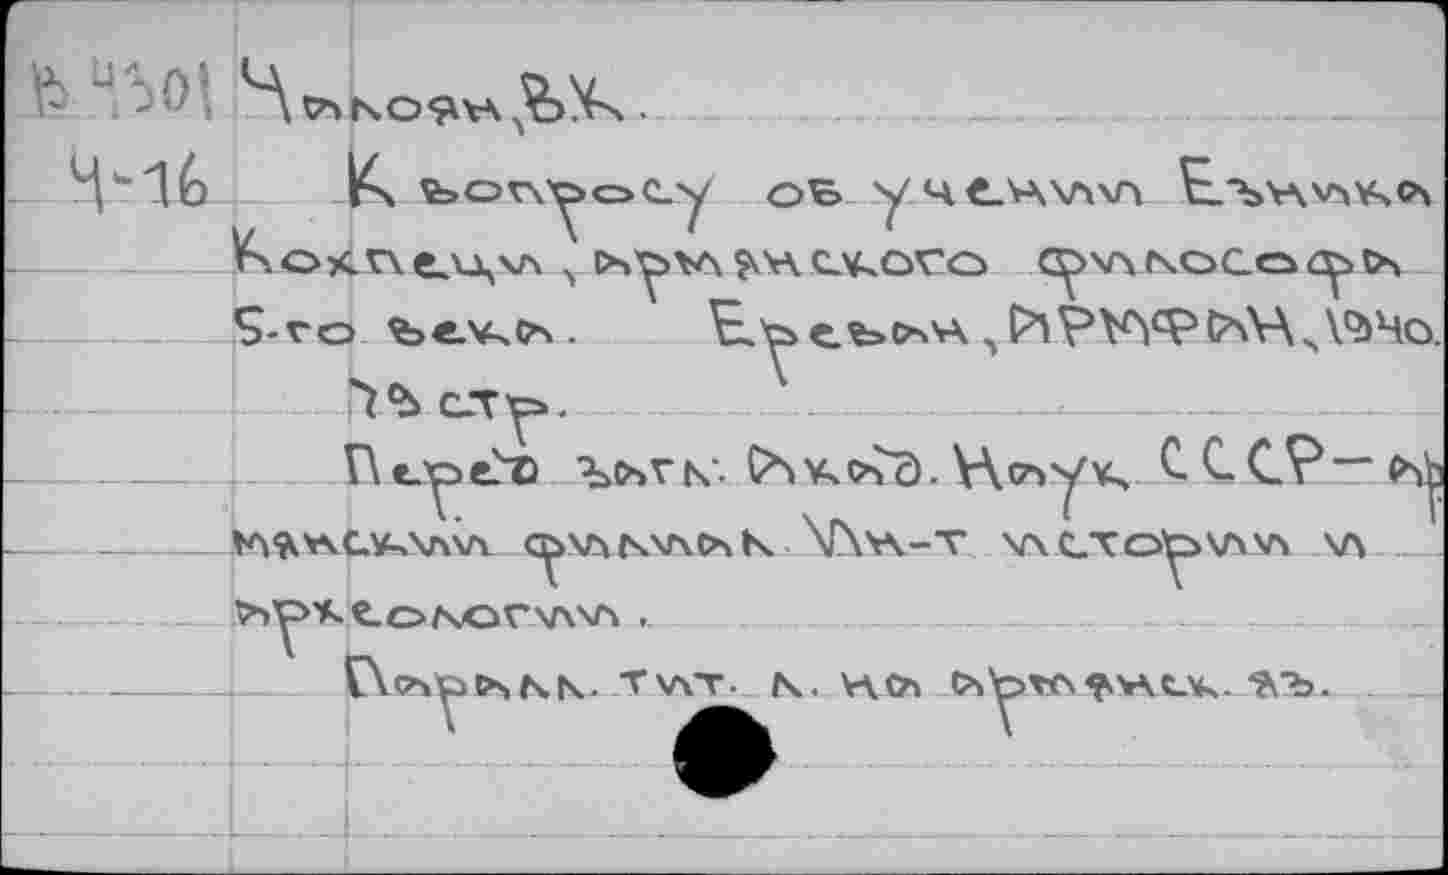 В4301 Чалоян, В.К.
Ч-16 К вопросу об учении Езника
Кохпеци, армянского философа
5-го века. Ереван, АРМФАН, 1940.
73 стр.
Перед загл: Акад. Наук СССР — Ар
мянский филиал Ин-т истории и
археологии.
Паралл. тит. л. на армянск. яз.